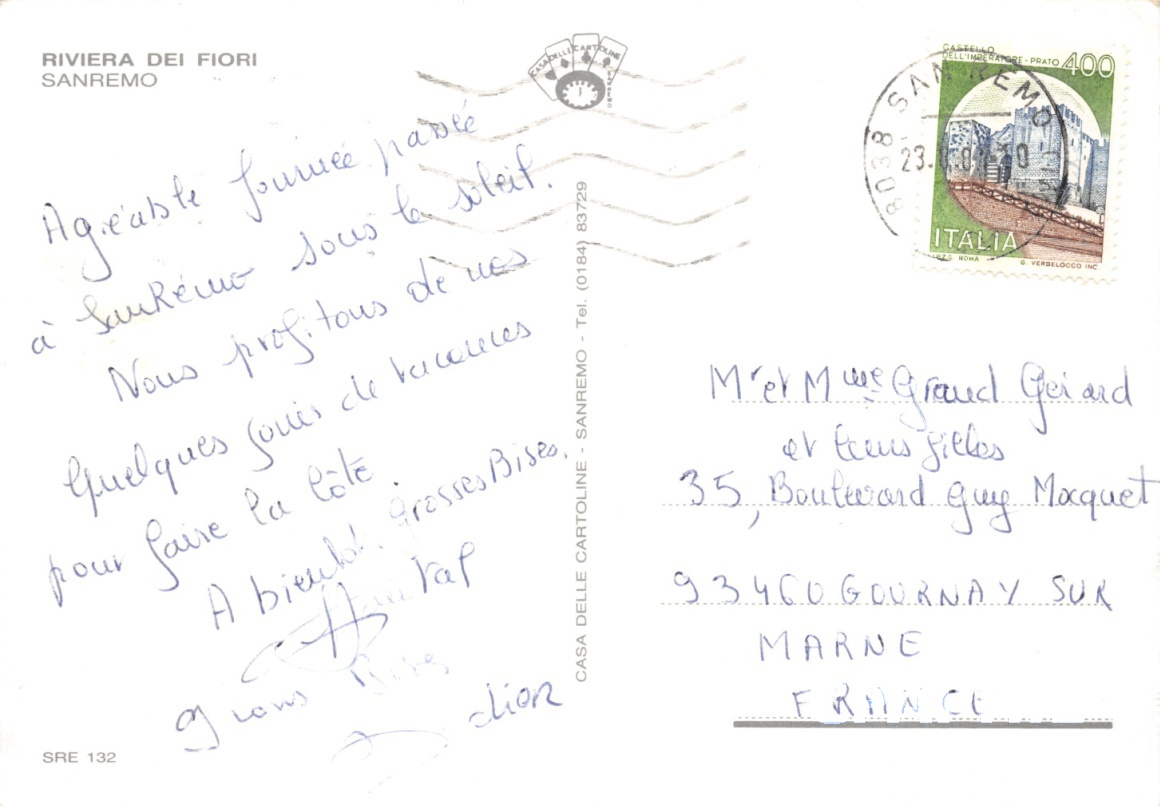 RIVIERA DEI FIORI
SANREMO
CASA DELLE CARTOLINE
SANREMO
CASTELLO
DELL'IMPERATORE - PRATO 400
ITALIA
I.P.Z.S. ROMA G. VERDELOCCO INC.
8038 SAN REMO
23.
Agréable journée passée
à SanRémo sous le soleil.
Nous profitons de nos
quelques jours de vacances
pour faire la côte.
A bientôt. Grosses Bises.
gros Bises
CASA DELLE CARTOLINE - SANREMO - Tel. (0184) 83729
Mr et Mme Grand Gérard
et leurs filles
35, Boulevard Guy Mocquet
93460 GOURNAY SUR
MARNE
FRANCE
SRE 132